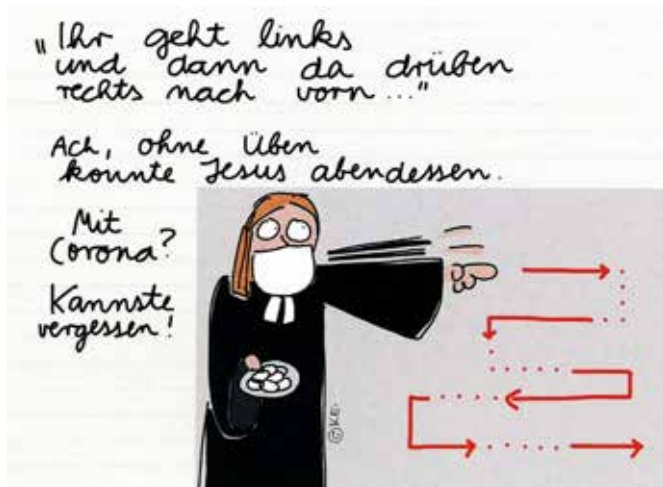 „Ihr geht links
und dann da drüben
rechts nach vorn..."
Ach, ohne Üben
konnte Jesus abendessen.
Mit
Corona?
Kannste
vergessen!
©KEI.